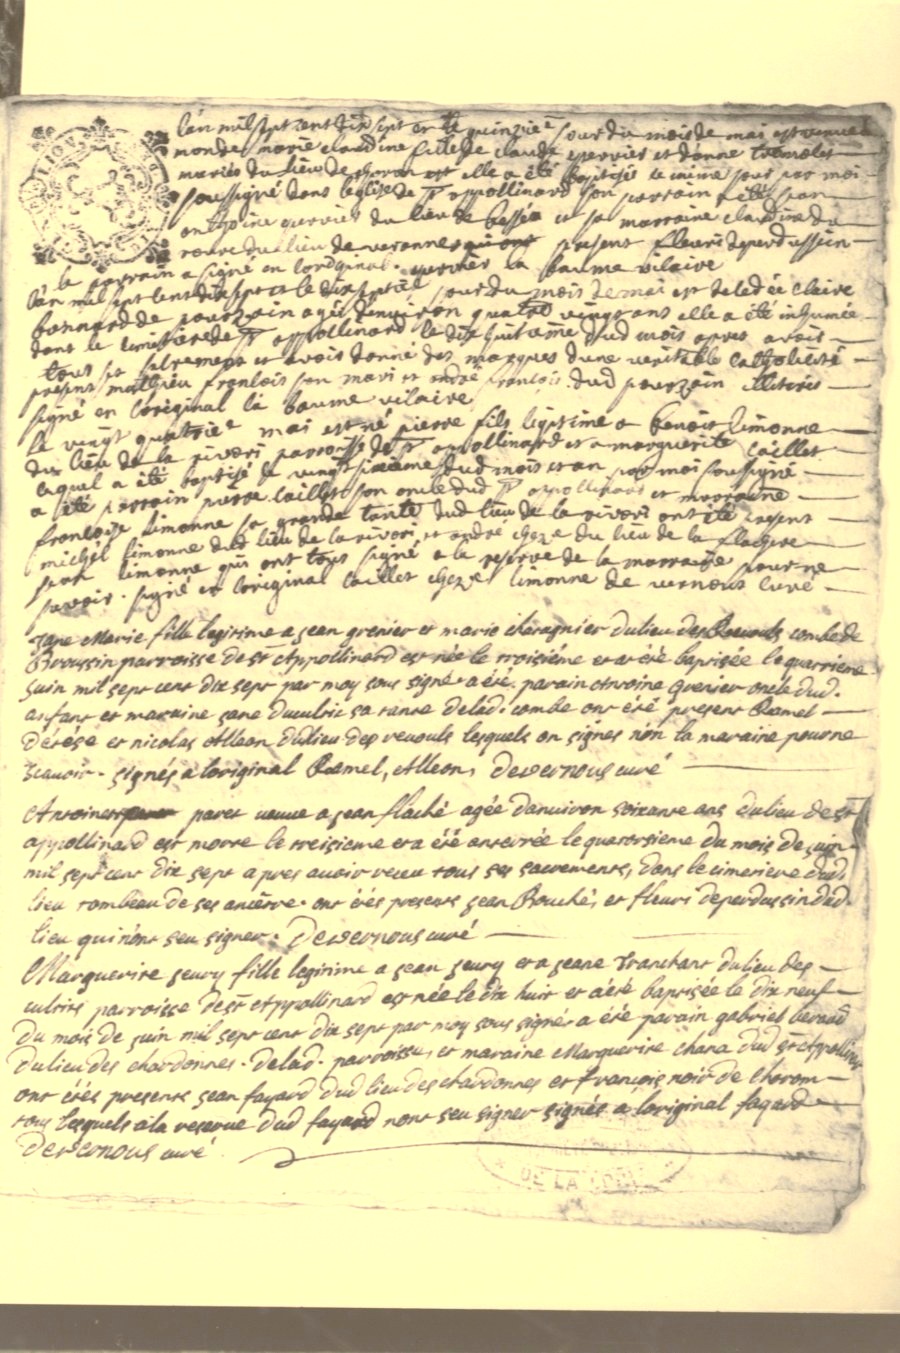 lan mil sept cent dix sept et le quinzie jour du mois de mai est venue au
monde marie claudine fille de claude querrier et donne
mariés du lieu de elle a été baptisée le même jour par moi
soussigné dans leglise de St appollinard son parrain a été jean
antoine querrier du lieu de bessea et sa marraine claudine du
rouve du lieu de veronne present fleuri deperdussin
le parrain a signé en loriginal querrier la baume vilaire
lan mil sept cent dix sept et le dix septie jour du mois de mai est decedée claire
bonnard de pourzain agée denviron quatre vingts ans elle a été inhumée
dans le cimetiere de St appollinard le dix huitieme dud mois apres avoir
tous ses sacrements et avoir donné des marques dune veritable catholicité
présents mathieu francois son mari et andré francois dud pourzain illiterés
signé en loriginal la baume vilaire
le vingt quatrie mai est né pierre fils legitime a benoit limonne
du lieu de la rivori parroisse de St appollinard et a marguerite caillet
lequel a été baptisé le vingt sixieme dud mois et an par moi sousigné
a été parrain pierre caillet son oncle dud St appollinard et marraine
francoise limonne sa grande tante dud lieu de la rivori ont été present
michel limonne dud lieu de la rivori et andré cheze du lieu de la flachere
jean limonne qui ont tous signé a la reserve de la marraine pour ne
savoir . signé en loriginal caillet cheze limonne de vernoux curé
Jane Marie fille legitime a jean grenier et marie charagnier du lieu des Revouls combe de
Broussin parroisse de St Appollinard est née le troisiéme et a été baptisée le quatrieme
juin mil sept cent dix sept par moy sous signé a été parain Antoine Grenier oncle dud.
enfant et maraine jane sa tante de lad. combe ont été present Ramel
dérése et nicolas Alleon du lieu des revouls lesquels on signés non la maraine pour ne
scavoir . signés a loriginal Ramel, Alleon, devernoux curé
Antoinette paret veuve a jean flaché agée danviron soixante ans du lieu de St
appollinard est morte le treisieme et a été anterrée le quatorsieme du mois de juin
mil sept cent dix sept apres avoir receu tous ses sacrements, dans le cimetiere dud.
lieu tombeau de ses ancètre . ont étés presents jean Rouché, et fleuri deperdussin dud.
lieu qui nont seu signer . Devernoux curé
Marguerite seury fille legitime a jean seury et a jeane tranchant du lieu des
cutivés parroisse de St Appollinard est née le dix huit et a été baptisée le dix neuf
du mois de juin mil sept cent dix sept par moy sous signé a été parain gabriel beraud
du lieu des chardonnes . de lad . parroisse, et maraine Marguerite chana dud St Appollinar
ont étés presents jean fayard dud lieu des chardonnes et françois noir de choron
tous lesquels a la reserve dud fayard nont seu signer signés a loriginal fayard
Devernoux curé
DE LA LOIRE